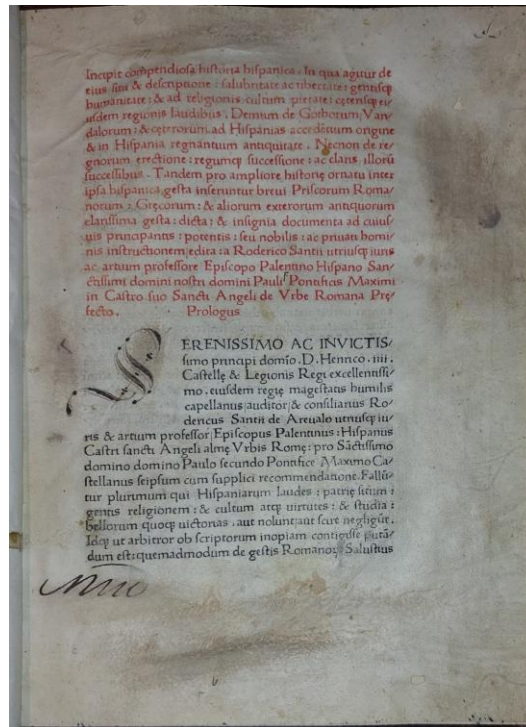 Incipit compendiosa historia hispanica. In qua agitur de
eius situ & descriptione: salubritate ac ubertate: gentisq;
humanitate: & ad religionis cultum pietate: ceterisq; ei/
usdem regionis laudibus. Demum de Gothorum, Van/
dalorum: & ceterorum ad Hispanias accedētium origine
& in Hispania regnantium antiquitate. Necnon de re/
gnorum erectione: regumq; successione: ac claris illorū
successibus. Tandem pro ampliore historie ornatu inter
ipsa hispanica, gesta inseruntur breui Priscorum Roma/
norum: Gręcorum: & aliorum exterorum antiquorum
clarissima gesta: dicta: & insignia documenta ad cuius/
uis principantis: potentis: seu nobilis: ac priuati homi/
nis instructionem, edita: a Roderico Santii utriusq; iuris
ac artium professore Episcopo Palentino Hispano San/
ctissimi domini nostri domini Pauli Pontificis Maximi
in Castro suo Sancti Angeli de Vrbe Romana Prę/
fecto. Prologus
SERENISSIMO AC INVICTIS/
simo principi domīo. D. Henrico. iiii.
Castellę & Legionis Regi excellentissi/
mo. eiusdem regię magestatis humilis
capellanus, auditor, & consiliarius Ro/
dericus Santii de Areualo utriusq; iu/
ris & artium professor, Episcopus Palentinus: Hispanus
Castri sancti Angeli almę Vrbis Romę: pro Sāctissimo
domino domino Paulo secundo Pontifice Maximo Ca/
stellanus seipsum cum supplici recommendatione. Fallū/
tur plurimum qui Hispaniarum laudes: patrię situm:
gentis religionem: & cultum atq; uirtutes: & studia:
bellorum quoq; uictorias, aut nolunt, aut scire negligūt.
Idq; ut arbitror ob scriptorum inopiam contigisse putā/
dum est: quemadmodum de gestis Romanoꝝ Salustius